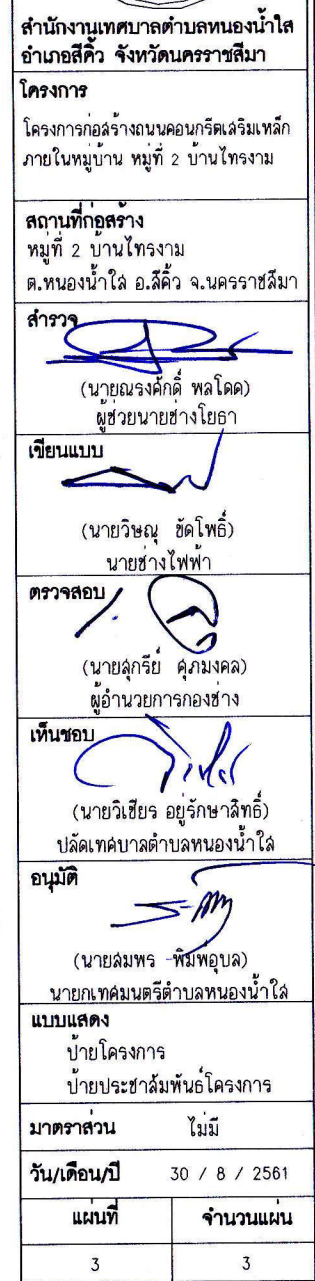 สำนักงานเทศบาลตำบลหนองน้ำใส
อำเภอสีคิ้ว จังหวัดนครราชสีมา
โครงการ
โครงการก่อสร้างถนนคอนกรีตเสริมเหล็ก
ภายในหมู่บ้าน หมู่ที่ 2 บ้านไทรงาม
สถานที่ก่อสร้าง
หมู่ที่ 2 บ้านไทรงาม
ต.หนองน้ำใส อ.สีคิ้ว จ.นครราชสีมา
สำรวจ
(นายณรงศักดิ์ พลโดด)
ผู้ช่วยนายช่างโยธา
เขียนแบบ
(นายวิษณุ ขัดโพธิ์)
นายช่างไฟฟ้า
ตรวจสอบ
(นายสุกรีย์ ศุภมงคล)
ผู้อำนวยการกองช่าง
เห็นชอบ
(นายวิเชียร อยู่รักษาสิทธิ์)
ปลัดเทศบาลตำบลหนองน้ำใส
อนุมัติ
(นายสมพร พิมพ์อุบล)
นายกเทศมนตรีตำบลหนองน้ำใส
แบบแสดง
ป้ายโครงการ
ป้ายประชาสัมพันธ์โครงการ
มาตราส่วน ไม่มี
วัน/เดือน/ปี 30 / 8 / 2561
แผ่นที่ จำนวนแผ่น
3 3